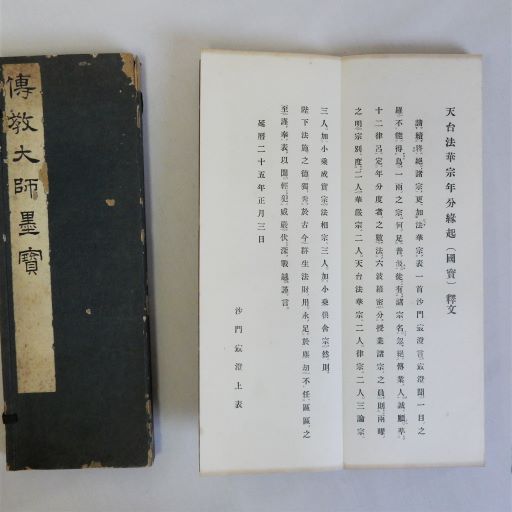 傳教大師墨寶
天台法華宗年分緣起（國寶）釋文
請續將絕諸宗更加法華宗表一首沙門最澄言最澄聞一目之
羅不能得鳥一兩之宗何足普汲徒有諸宗名忽絕傳業人誠願準
十二律呂定年分度者之數法六波羅密分授業諸宗之員則兩曜
之明宗別度二人華嚴宗二人天台法華宗二人律宗二人三論宗
三人加小乘成實宗法相宗三人加小乘俱舍宗然則
陛下法施之德獨秀於古今群生法財用永足於塵劫不任區區之
至謹奉表以聞輕犯威嚴伏深戰越謹言
延曆二十五年正月三日
沙門最澄上表